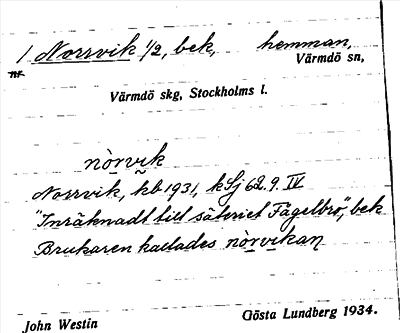 1 Norrvik 1/2, bek, hemman,
nr.
Värmdö sn,
Värmdö skg, Stockholms l.
nòrvik
Norrvik, kb 1931, k Sj 62.9. IV
"Inräknadt till säteriet Fågelbro", bek
Brukaren kallades nòrvikan
John Westin
Gösta Lundberg 1934.